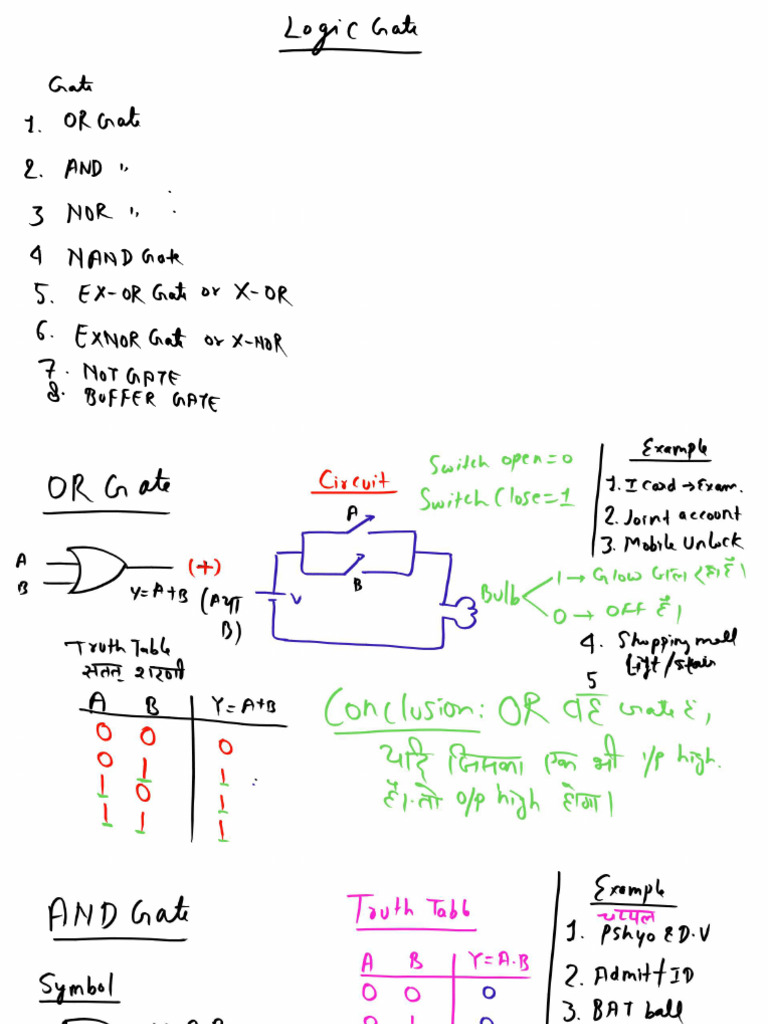 Logic Gate
Gate
1. OR Gate
2. AND "
3 NOR "
4 NAND Gate
5. EX-OR Gate or X-OR
6. EXNOR Gate or X-NOR
7. NOT GATE
8. BUFFER GATE
OR Gate
A
B
Y=A+B
(+)
(A या B)
Circuit
A
B
V
Switch open=0
Switch Close=1
Bulb
1→ Glow
0→ OFF है।
Example
1. I Card → Exam.
2. Joint account
3. Mobile Unlock
4. Shopping mall
Lift/stair
5
Truth Table
A B Y=A+B
0 0 0
0 1 1
1 0 1
1 1 1
Conclusion: OR वह Gate है,
यदि जिसका एक भी i/p high.
है। तो o/p high होगा।
AND Gate
Symbol
Truth Table
A B Y=A.B
0 0 0
0 1 0
Example
चप्पल
1.
2. Admit + ID
3. BAT ball